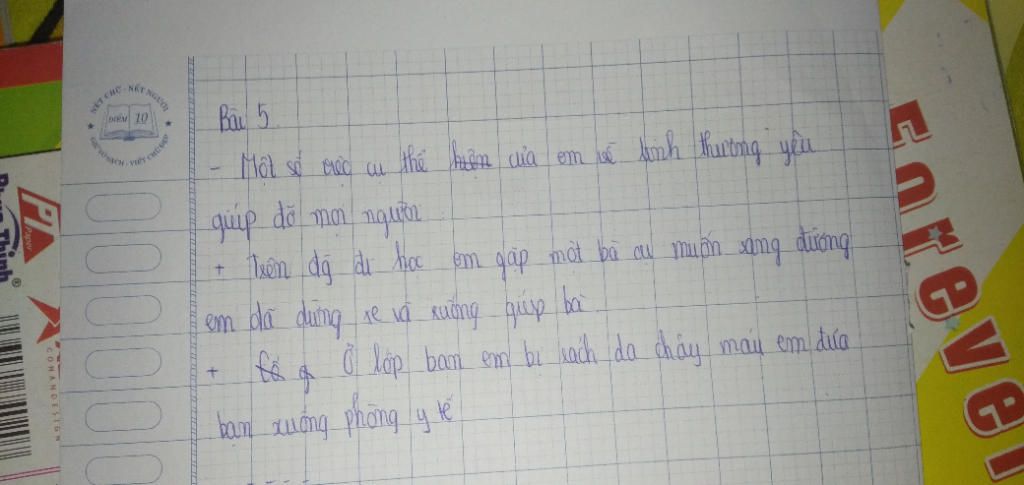 NÉT CHỮ - NẾT NGƯỜI
ĐIỂM 10
GIỮ VỞ SẠCH - VIẾT CHỮ ĐẸP
Bài 5
- Một số việc cụ thể hiện của em về tình thương yêu
giúp đỡ mọi người
+ Trên đg đi học em gặp một bà cụ muốn sang đường
em đã dừng xe và xuống giúp bà
+ Ở lớp bạn em bị rách da chảy máu em đưa
bạn xuống phòng y tế
FOREVER